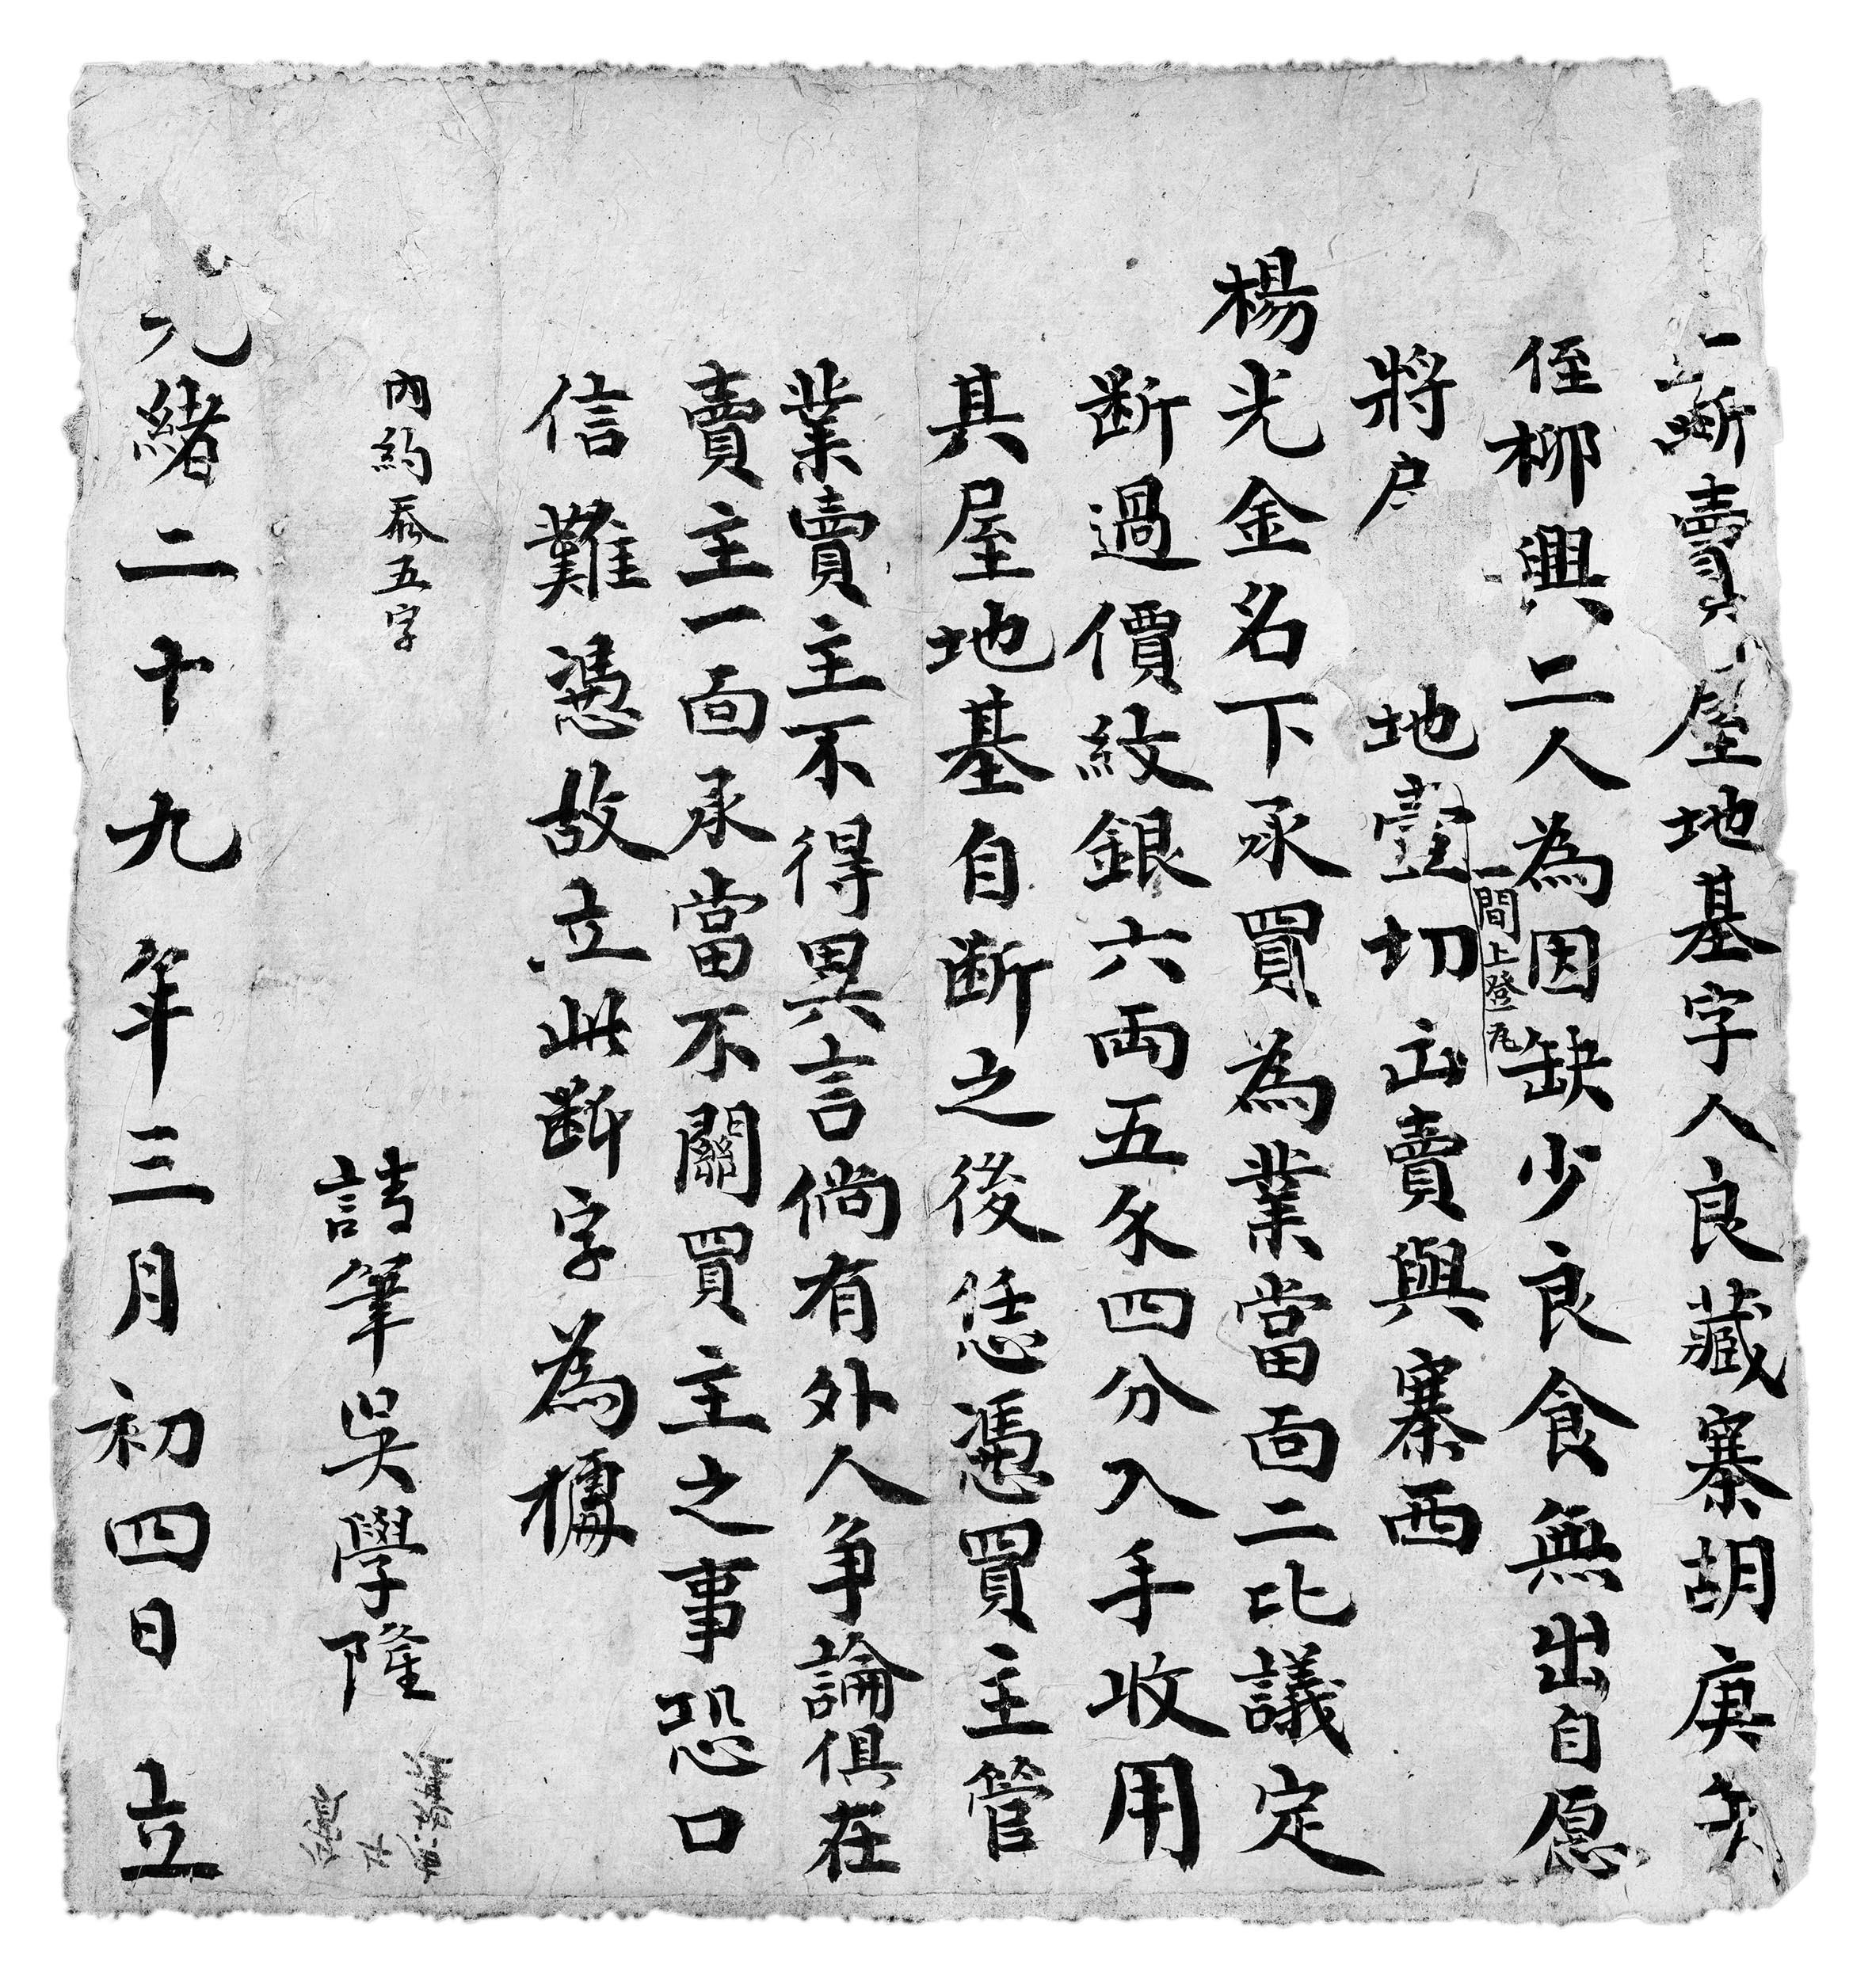 立断賣屋地基字人良藏寨胡庚年
侄柳興二人為因缺少良食無出自愿
將户地壹切出賣與寨西
一間上登瓦
楊光金名下承買為業當面二比議定
断過價紋銀六両五錢四分入手收用
其屋地基自断之後恁憑買主管
業賣主不得異言倘有外人争論俱在
賣主一面承當不關買主之事恐口
信難憑故立此断字為據
內約添五字
請筆吳學隆
光緒二十九年三月初四日立